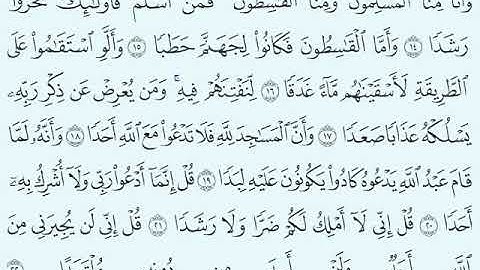 وَأَنَّا مِنَّا ٱلْمُسْلِمُونَ وَمِنَّا ٱلْقَٰسِطُونَ فَمَنْ أَسْلَمَ فَأُو۟لَٰٓئِكَ تَحَرَّوْا۟
رَشَدًا ١٤ وَأَمَّا ٱلْقَٰسِطُونَ فَكَانُوا۟ لِجَهَنَّمَ حَطَبًا ١٥ وَأَلَّوِ ٱسْتَقَٰمُوا۟ عَلَى
ٱلطَّرِيقَةِ لَأَسْقَيْنَٰهُم مَّآءً غَدَقًا ١٦ لِّنَفْتِنَهُمْ فِيهِ ۚ وَمَن يُعْرِضْ عَن ذِكْرِ رَبِّهِۦ
يَسْلُكْهُ عَذَابًا صَعَدًا ١٧ وَأَنَّ ٱلْمَسَٰجِدَ لِلَّهِ فَلَا تَدْعُوا۟ مَعَ ٱللَّهِ أَحَدًا ١٨ وَأَنَّهُۥ لَمَّا
قَامَ عَبْدُ ٱللَّهِ يَدْعُوهُ كَادُوا۟ يَكُونُونَ عَلَيْهِ لِبَدًا ١٩ قُلْ إِنَّمَآ أَدْعُوا۟ رَبِّى وَلَآ أُشْرِكُ بِهِۦٓ
أَحَدًا ٢٠ قُلْ إِنِّى لَآ أَمْلِكُ لَكُمْ ضَرًّا وَلَا رَشَدًا ٢١ قُلْ إِنِّى لَن يُجِيرَنِى مِنَ